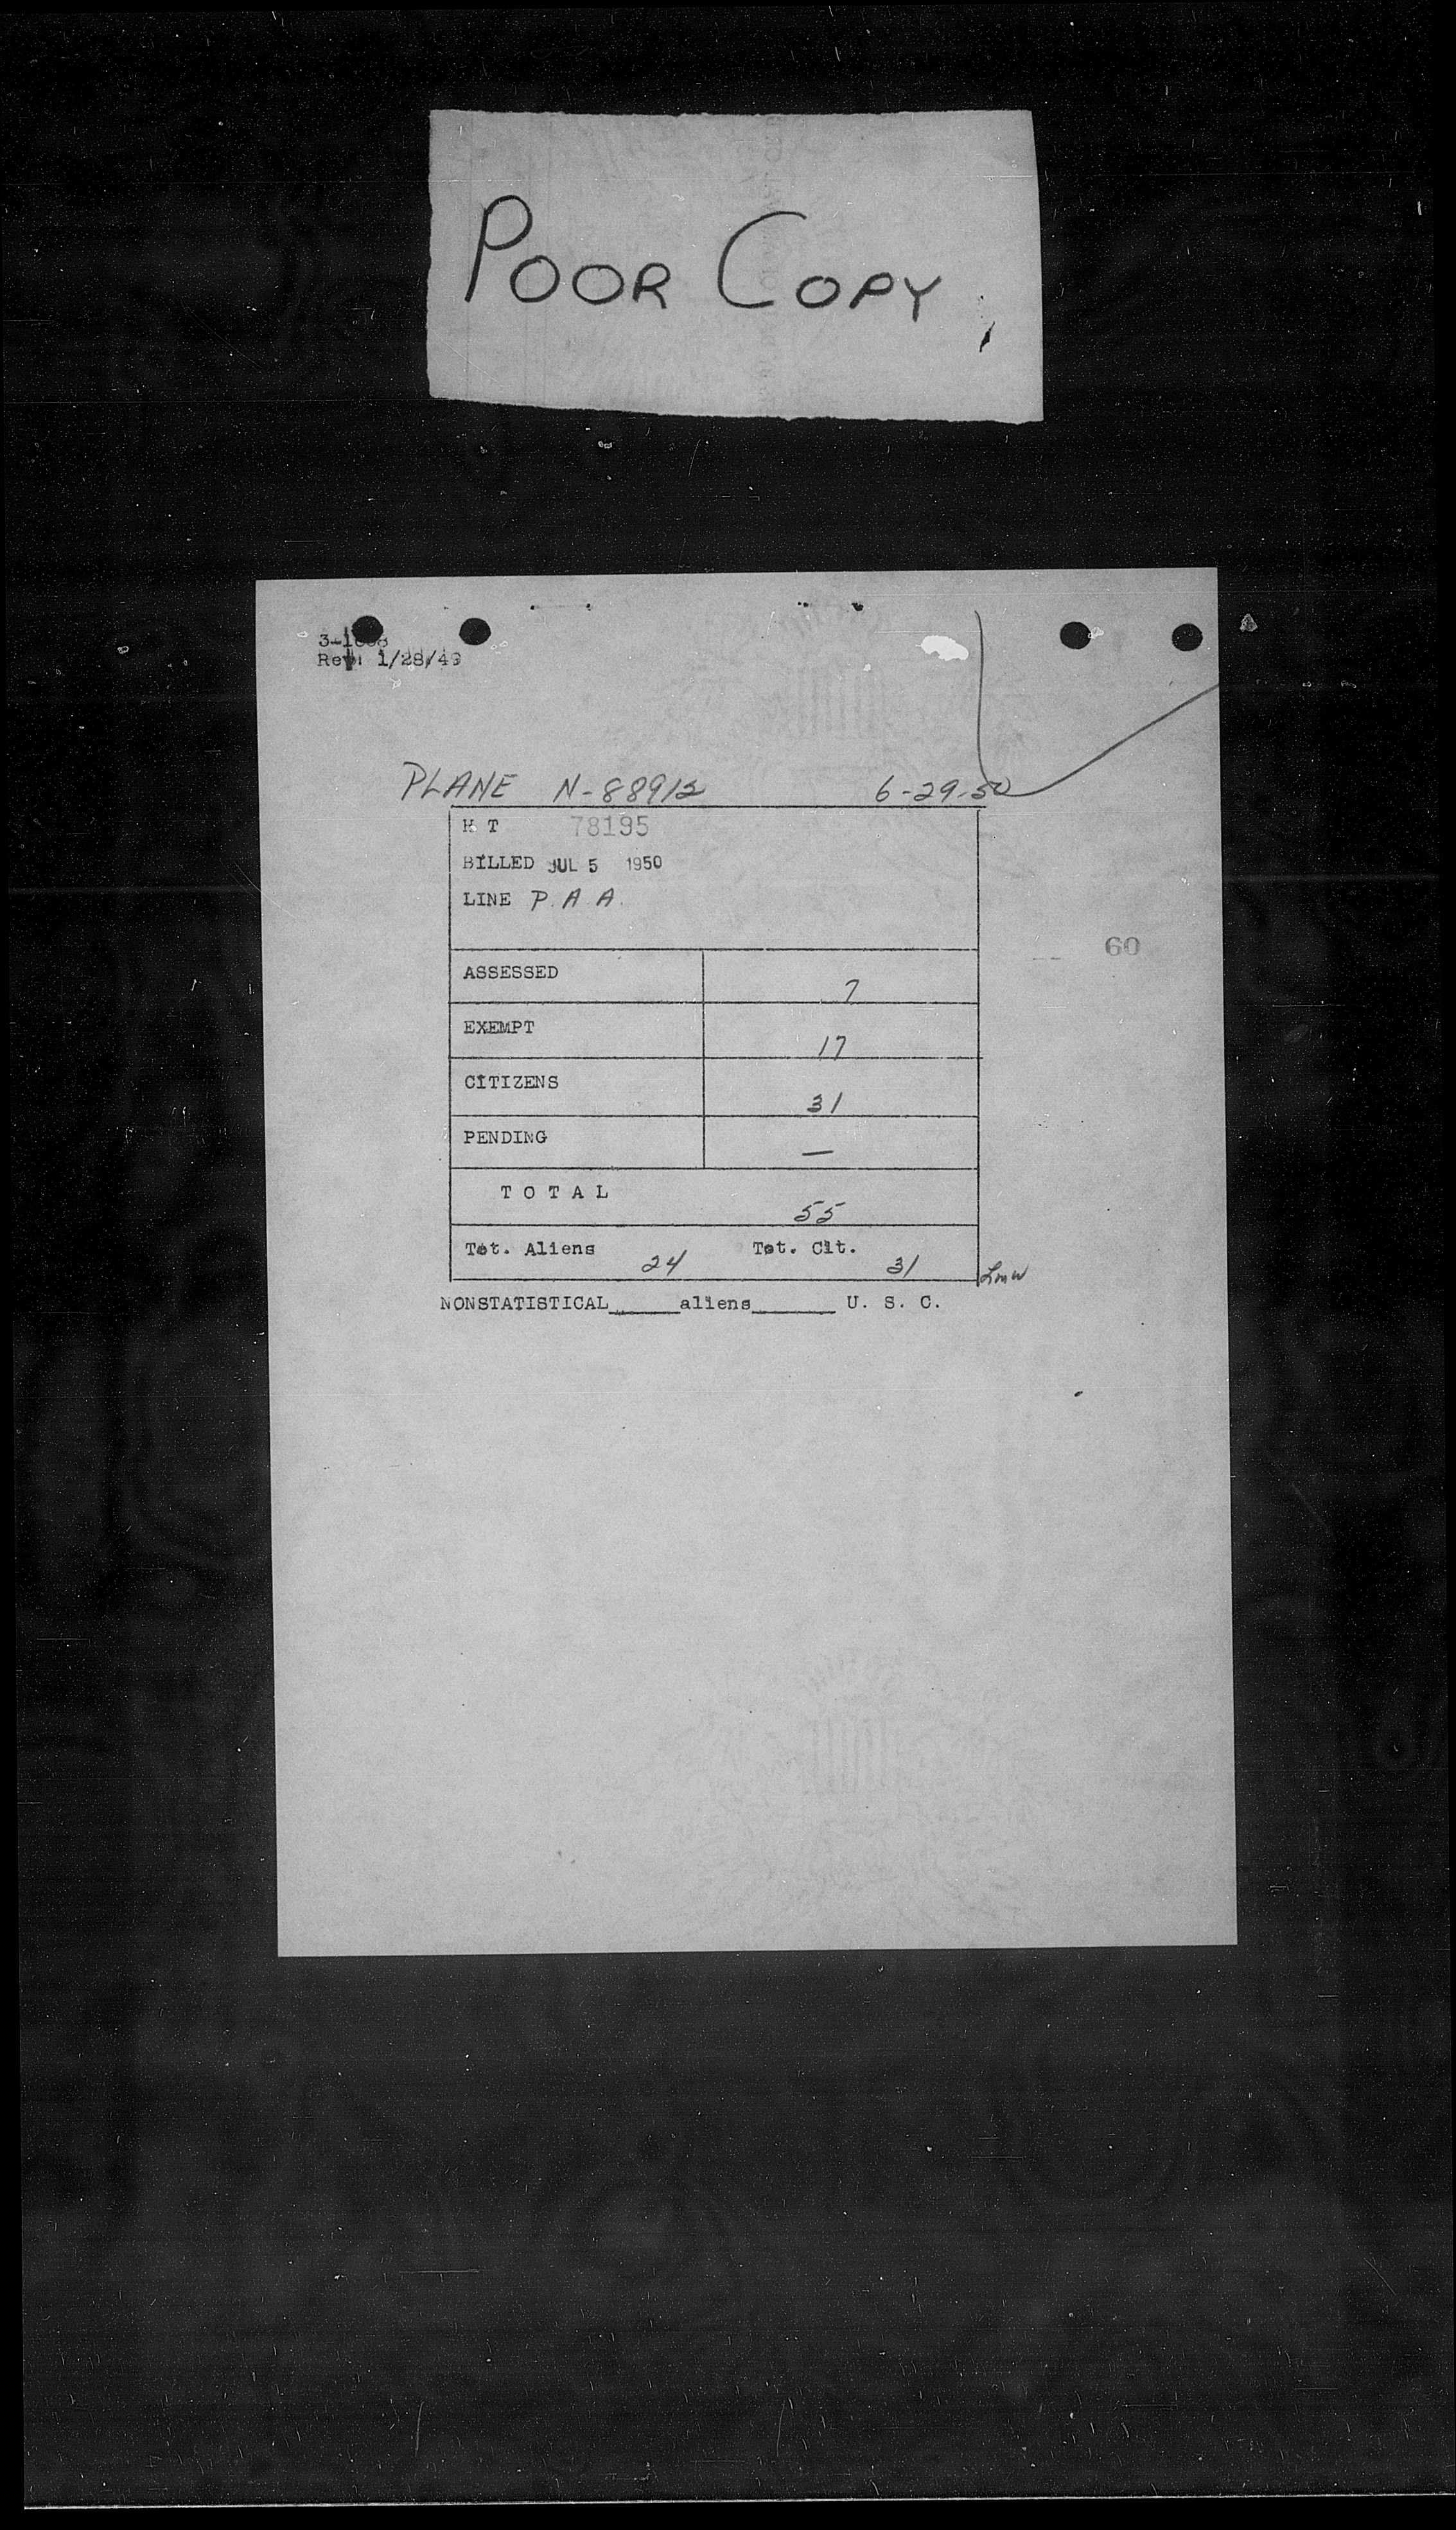 POOR COPY
Rev: 1/28/49
PLANE N-88912 6-29-50
H T 78195
BILLED JUL 5 1950
LINE P. A. A.
60
ASSESSED 7
EXEMPT 17
CITIZENS 31
PENDING —
T O T A L 55
Tot. Aliens 24 Tot. Cit. 31
NONSTATISTICAL_____aliens______ U. S. C.